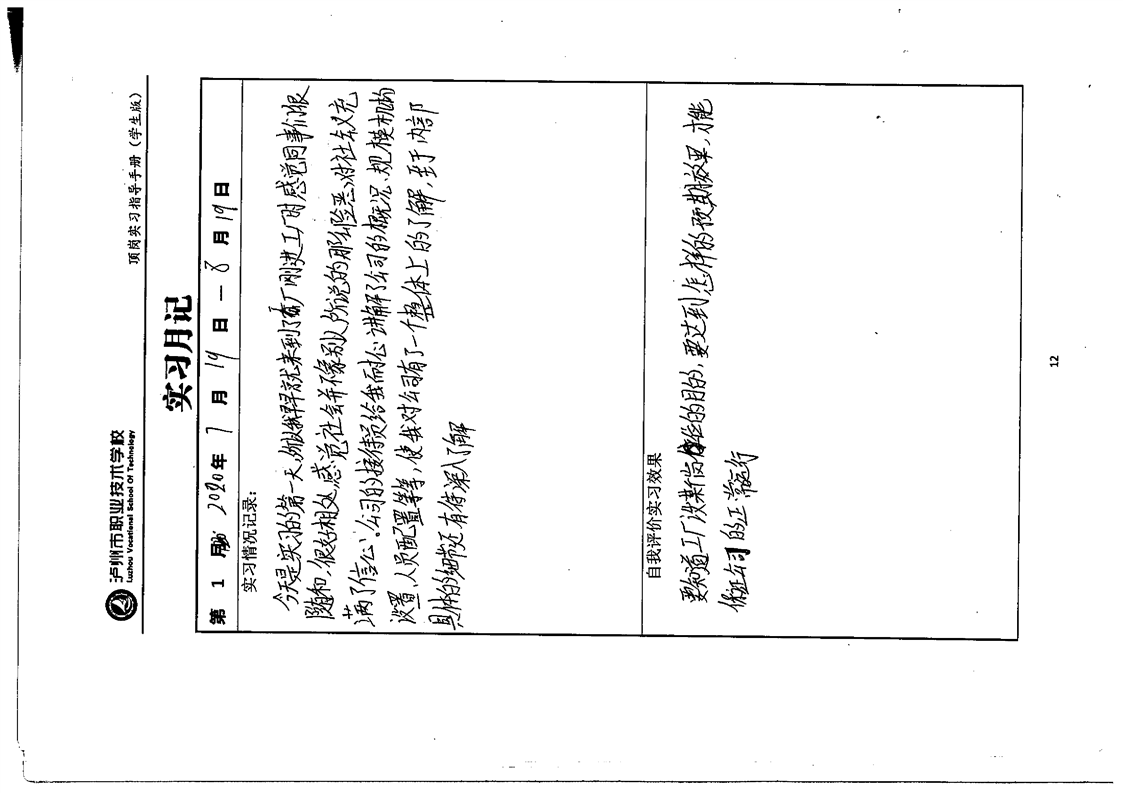 泸州市职业技术学校
Luzhou Vocational School Of Technology
顶岗实习指导手册（学生版）
实习月记
第 1 月 2020年 7 月 19 日 — 8 月 19 日
实习情况记录：
今天是实习的第一天，所以我早早就来到了工厂，刚进工厂时感觉同事们很
随和，很好相处，感觉社会并不像别人所说的那么险恶，对社会又充
满了信心。公司的接待员给我耐心讲解了公司的概况、规模、机构
设置、人员配置等等，使我对公司有了一个整体上的了解，至于内部
具体的细节还有待深入了解
自我评价实习效果
要知道工厂设某个岗位的目的，要达到怎样的预期效果，才能
保证公司的正常运行
12